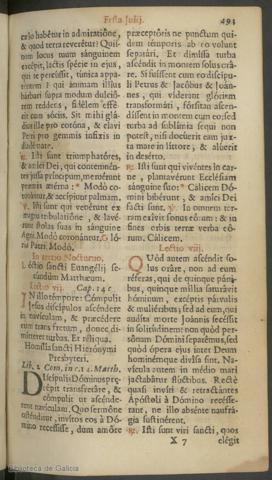 Festa Julij. 493
cælo habétur in admiratióne,
& quod terra reverétur! Qui-
nam locus nunc sanguinem
excépit, lactis spécie in ejus,
qui te percússit, túnica appa-
réntem? qui ánimam illíus
bárbari supra modum dulció-
rem reddens, fidélem
cit cum sóciis. Sit mihi glá-
dius ille pro coróna, & clavi
Petri pro gemmis infíxis in
diadémate.
℟. Isti sunt triumphatóres,
& amíci Dei, qui contemnén-
tes jussa príncipum, meruérunt
præmia ætérna: * Modò co-
ronántur, & accípiunt palmam.
℣. Isti sunt qui venérunt ex
magna tribulatióne, & lavé-
runt stolas suas in sánguine
Agni. Modò coronántur. Gló-
ria Patri. Modò.
In tertio Nocturno,
Léctio sancti Evangélij se-
cúndum Matthæum.
Lectio vij. Cap. 14 c.
IN illo témpore: Cómpulit
Jesus discípulos ascéndere
in navículam, & præcédere
eum trans fretum, donec di-
mítteret turbas. Et réliqua.
Homilía sancti Hierónymi
Presbyteri.
Lib. 2. Com. in c. 14. Matth.
DIscípulis Dóminus præ-
cépit transfretáre, &
cómpulit ut ascénde-
rent navículam. Quo sermóne
osténditur, invítos eos à Dó-
mino recessísse, dum amóre
præceptóris ne punctum qui-
dem témporis ab eo volunt
separári. Et dimíssa turba
ascéndit in montem solus orá-
re. Si fuíssent cum eo discípu-
li Petrus & Jacóbus & Joán-
nes, qui víderant glóriam
transformáti, fórsitan ascen-
díssent in montem cum eo: sed
turba ad sublímia sequi non
potest, nisi docúerit eam jux-
ta mare in líttore, & alúerit
in desérto.
℟. Isti sunt qui vivéntes in car-
ne, plantavérunt Ecclésiam
sánguine suo: * Cálicem Dó-
mini bibérunt, & amíci Dei
facti sunt. ℣. In omnem ter-
ram exívit sonus eórum: & in
fines orbis terræ verba eó-
rum. Cálicem.
Lectio viij.
QUòd autem ascéndit so-
lus oráre, non ad eum
réferas, qui de quinque páni-
bus, quinque míllia saturávit
hóminum, excéptis párvulis
& muliéribus; sed ad eum, qui
audíta morte Joánnis secéssit
in solitúdinem: non quòd per-
sónam Dómini separémus, sed
quòd ópera ejus inter Deum
hominémque divísa sint. Na-
vícula autem in médio mari
jactabátur flúctibus. Rectè
quasi invíti & retractántes
Apóstoli à Dómino recésse-
rant, ne illo absénte naufrá-
gia sustinérent.
℟. Isti sunt viri sancti, quos
X 7 elégit
Biblioteca de Galicia